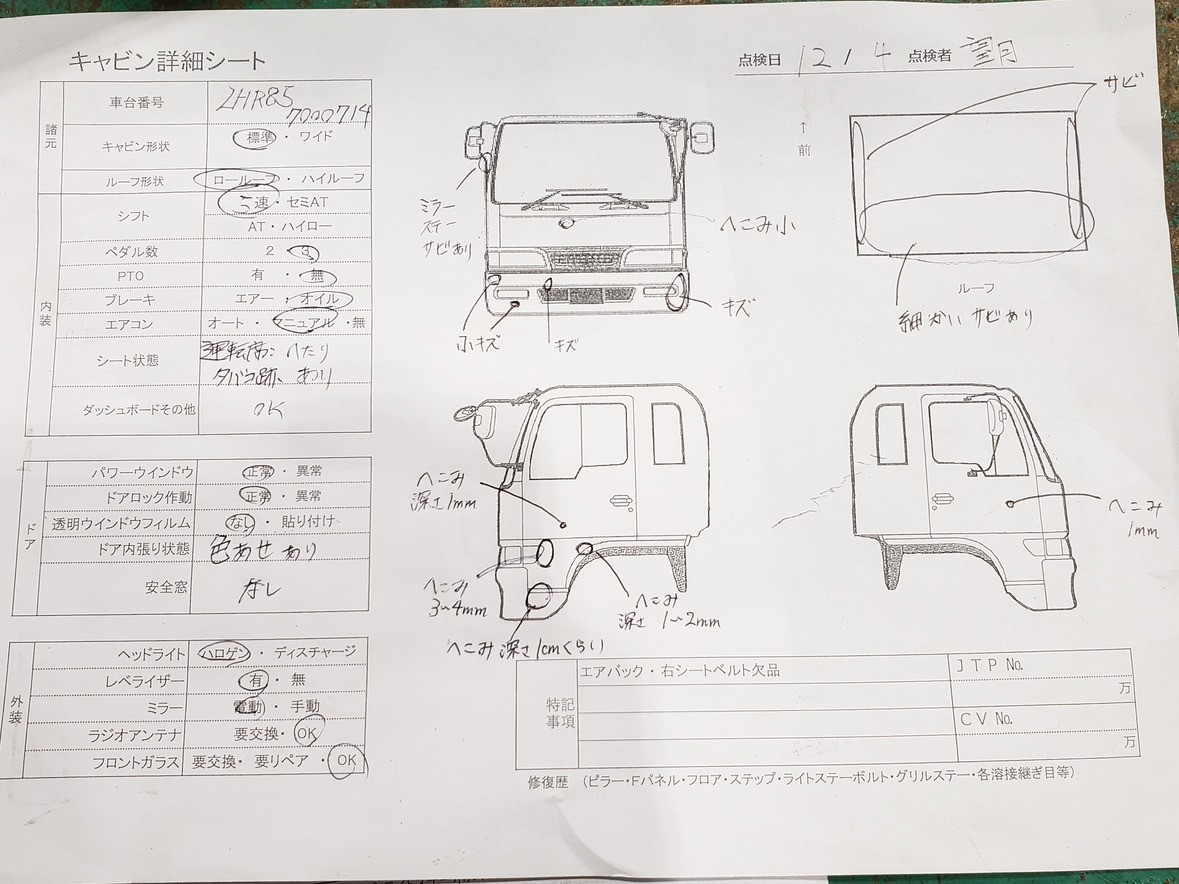 キャビン詳細シート
点検日 12 1 4 点検者 望月
諸元
車台番号 LHR85
7000714
キャビン形状 標準・ワイド
ルーフ形状 ロールーフ・ハイルーフ
内装
シフト 速・セミAT
AT・ハイロー
ペダル数 2・3
PTO 有・無
ブレーキ エアー・オイル
エアコン オート・マニュアル・無
シート状態 運転席:へたり
タバコ跡、あり
ダッシュボードその他 OK
ドア
パワーウインドウ 正常・異常
ドアロック作動 正常・異常
透明ウインドウフィルム なし・貼り付け
ドア内張り状態 色あせあり
安全窓 なし
外装
ヘッドライト ハロゲン・ディスチャージ
レベライザー 有・無
ミラー 電動・手動
ラジオアンテナ 要交換・OK
フロントガラス 要交換・要リペア・OK
ミラー
ステー
サビあり
へこみ小
小キズ
キズ
キズ
サビ
↑
前
ルーフ
細かいサビあり
へこみ
深さ1mm
へこみ
3~4mm
へこみ 深さ1cmくらい
へこみ
深さ 1~2mm
へこみ
1mm
特記事項
エアバック・右シートベルト欠品
JTP No.
万
CV No.
万
修復歴 (ピラー・Fパネル・フロア・ステップ・ライトステーボルト・グリルステー・各溶接継ぎ目等)